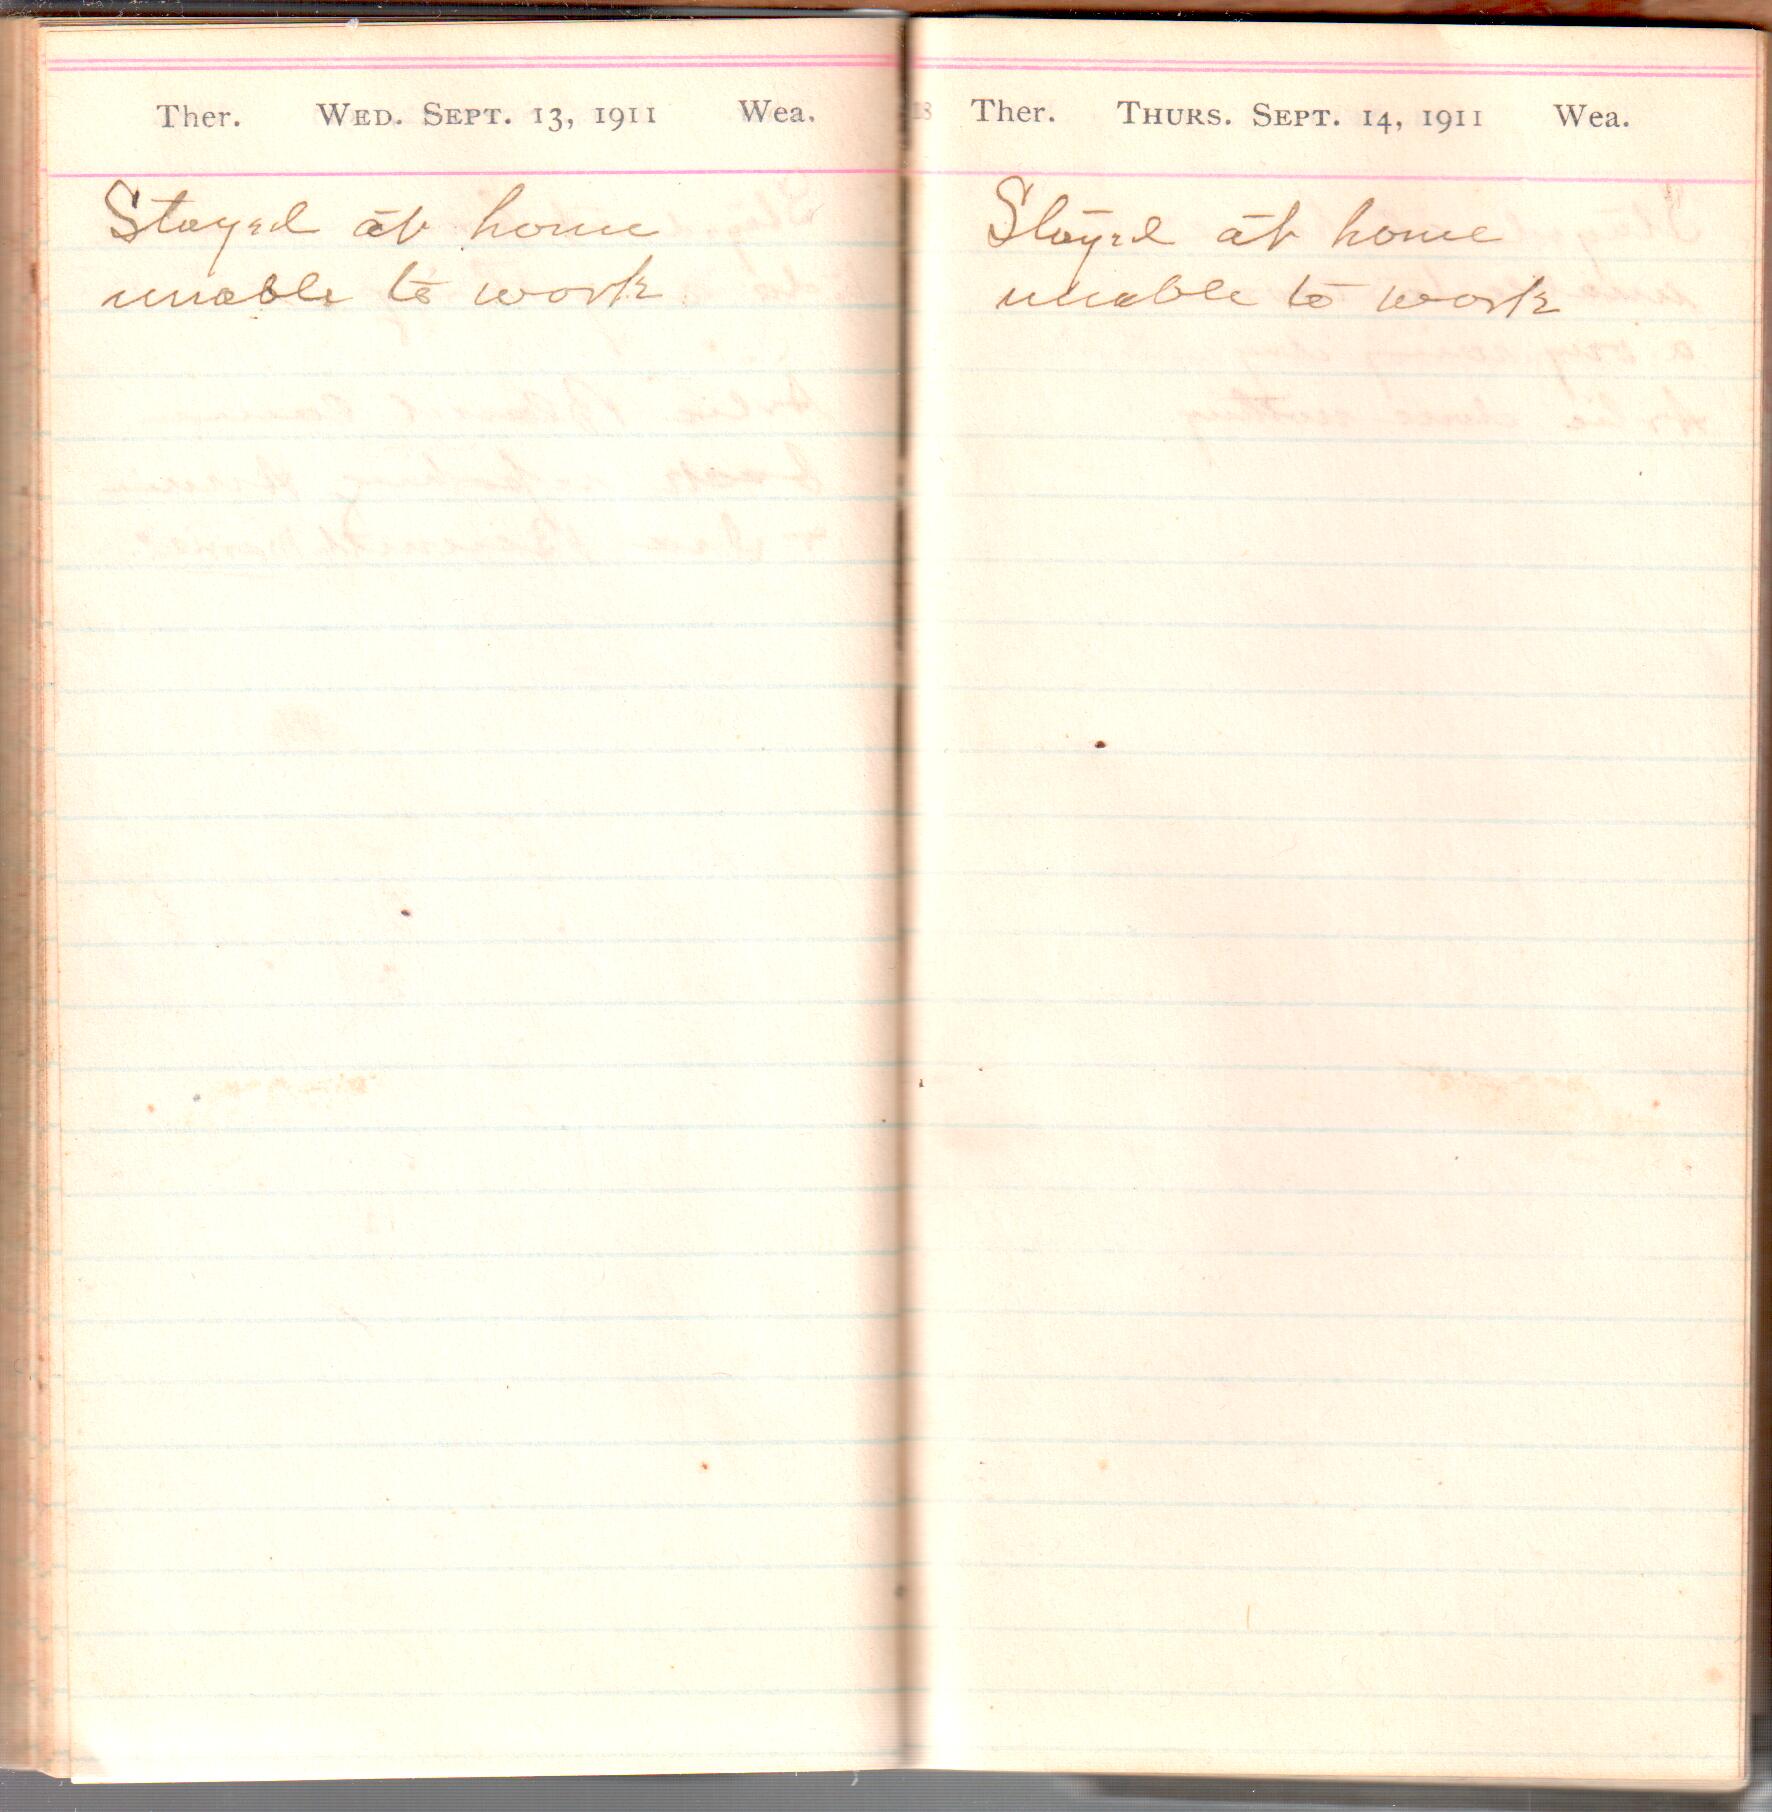 Ther. WED. SEPT. 13, 1911 Wea.
Stayed at home
unable to work
Ther. THURS. SEPT. 14, 1911 Wea.
Stayed at home
unable to work